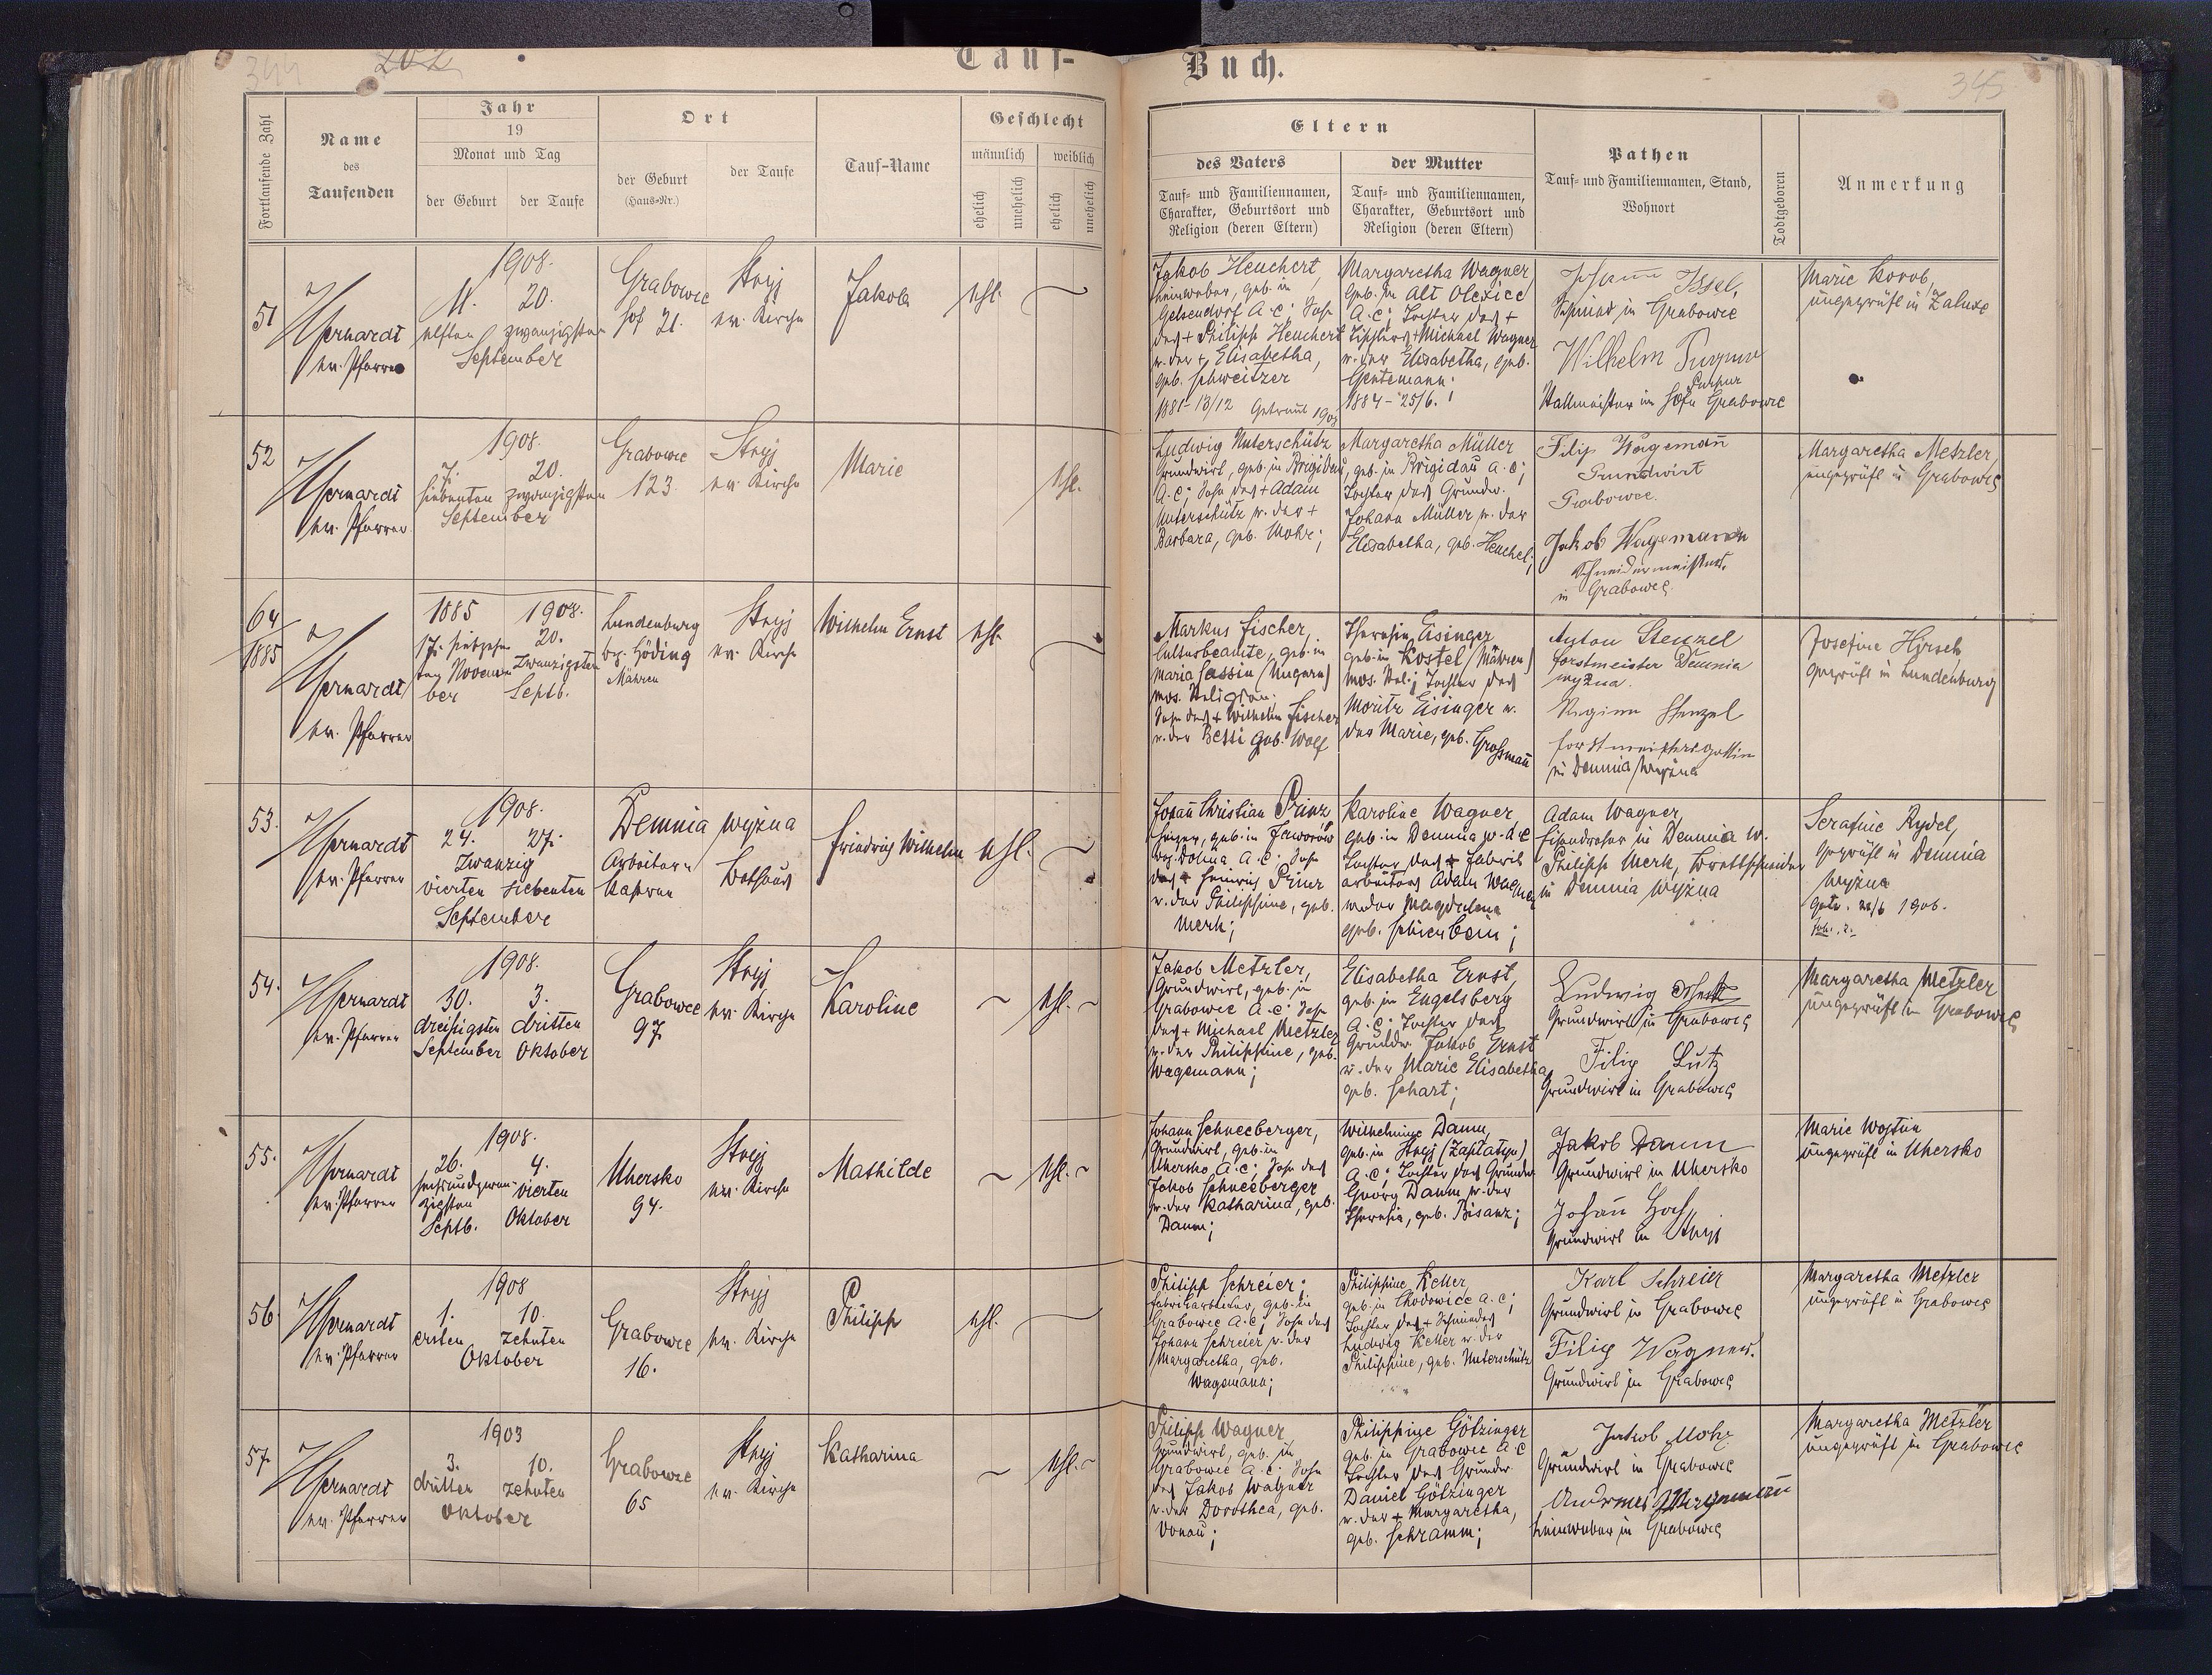 344
202
Tauf-
Buch.
345
Fortlaufende Zahl
Name
des
Taufenden
Jahr
19
Monat und Tag
der Geburt
der Taufe
Ort
der Geburt
(Haus-Nr.)
der Taufe
Tauf-Name
Geschlecht
männlich
weiblich
ehelich
unehelich
ehelich
unehelich
Eltern
des Vaters
Tauf- und Familiennamen,
Charakter, Geburtsort und
Religion (deren Eltern)
der Mutter
Tauf- und Familiennamen,
Charakter, Geburtsort und
Religion (deren Eltern)
Pathen
Tauf- und Familiennamen, Stand,
Wohnort
Todtgeboren
Anmerkung
51
ev. Pfarrer
1908.
11. 20.
elften zwanzigsten
September
Grabowce
hof 21.
Stryj
ev. Kirche
Jakob
ehl.
Jakob Heuchert,
Leinweber, geb. in
Gelsendorf A.C.; Sohn
des + Philipp Heuchert
u. der +, Elisabetha,
geb. Schweitzer
1881-13/12 Getraut
Margaretha Wagner
geb. in Alt Olexice
A.C.; Tochter des +
Tischlers + Michael Wagner
u. der Elisabetha, geb.
Gentemann.
1884-25/6.
Johann Issel,
Schmied in Grabowce
Wilhelm Purpur
Purpur
Stallmeister im Hofe Grabowce
Marie Korob,
ungeprüft in Zaluze
52
ev. Pfarrer
1908.
7. 20.
siebenten zwanzigsten
September
Grabowce
123
Stryj
ev. Kirche
Marie
ehl.
Ludwig Unterschütz
Grundwirt, geb. in Brigidau,
A.C.; Sohn des + Adam
Unterschütz u. der +
Barbara, geb. Mohr;
Margaretha Müller
geb. in Brigidau A.C;
Tochter des Grundw.
Johann Müller u. der
Elisabetha, geb. Heuchel;
Filip Wagemann
Grundwirt
Grabowce.
Jakob Wagemann
Schneidermeister
in Grabowce.
Margaretha Metzler,
ungeprüft in Grabowce
64
1885
ev. Pfarrer
1885 1908.
17. siebzehn 20.
ten Novem zwanzigsten
ber Septb.
Lundenburg
bz. Göding
Mähren
Stryj
ev. Kirche
Wilhelm Ernst
ehl.
Markus Fischer,
Cultusbeamte, geb. in
Maria Sassin (Ungarn)
mos. Religion.
Sohn des + Wilhelm Fischer
u. der Betti geb. Wolf
Theresia Eisinger
geb. in Kostel (Mähren)
mos. Rel.; Tochter des
Moritz Eisinger u.
der Marie, geb. Grossmann
Anton Stenzel
Forstmeister Demnia
wyżna.
Regina Stenzel
Forstmeistersgattin
in Demnia wyżna
Josefine Hirsch
geprüft in Lundenburg
53.
ev. Pfarrer
1908.
24. 27.
Zwanzig
vierten siebenten
September
Demnia wyżna
Arbeiter
Bethaus
Friedrich Wilhelm
ehl.
Johann Christian Prinz
Heizer, geb. in Jaworów
A.C. Sohn
des + Heinrich Prinz
u. der Philippine, geb.
Merk;
Karoline Wagner
geb. in Demnia w. A.C
Tochter des + Fabrik
arbeiters Adam Wagner
u. der Magdalena
geb. Schierbein;
Adam Wagner,
Eisendreher in Demnia w.
Philipp Merk, Brettschneider
in Demnia wyżna
Serafine Rydel,
geprüft in Demnia
Wyżna
1906.
54.
ev. Pfarrer
1908.
30. 3.
dreißigsten dritten
September Oktober
Grabowce
97
Stryj
ev. Kirche
Karoline
ehl.
Jakob Metzler,
Grundwirt, geb. in
Grabowce A.C.; Sohn
des + Michael Metzler
u. der Philippine, geb.
Wagemann;
Elisabetha Ernst,
geb. in Engelsberg
A.C.; Tochter des
Grundw. Jakob Ernst
u. der Marie Elisabetha,
geb. Schart;
Ludwig
Grundwirt in Grabowce
Filip Lutz
Grundwirt in Grabowce
Margaretha Metzler
ungeprüft in Grabowce
55.
ev. Pfarrer
1908.
26. 4.
sechsundzwan- vierten
zigsten
Septb. Oktober
Uhersko
94.
Stryj
ev. Kirche
Mathilde
ehl.
Johann Schneeberger,
Grundwirt, geb. in
Uhersko A.C.; Sohn des
Jakob Schneeberger
u. der Katharina, geb.
Daum;
Wilhelmine Daum,
geb. in Stryj (Zaplatyn)
A.C.; Tochter des Grundw.
Georg Daum u. der
Theresia, geb. Bisanz;
Jakob Daum
Grundwirt in Uhersko
Johann Hoch,
Grundwirt in Stryj
Marie
ungeprüft in Uhersko
56
ev. Pfarrer
1908
1. 10.
ersten zehnten
Oktober
Grabowce
16.
Stryj
ev. Kirche
Philipp
ehl.
Philipp Schreier;
Fabrikarbeiter, geb. in
Grabowce A.C.; Sohn des
Johann Schreier u. der
Margaretha, geb.
Wagemann;
Philippine Keller
geb. in Chodowice A.C;
Tochter des + Schmiedes
Ludwig Keller u. der
Philippine, geb. Unterschütz
Karl Schreier
Grundwirt in Grabowce
Filip Wagner.
Grundwirt in Grabowce
Margaretha Metzler
ungeprüft in Grabowce
57.
ev. Pfarrer
1903
3. 10.
dritten zehnten
Oktober
Grabowce
65
Stryj
ev. Kirche
Katharina
ehl.
Philipp Wagner
Grundwirt, geb. in
Grabowce A.C.; Sohn
des Jakob Wagner
u. der Dorothea, geb.
Donau;
Philippine Götzinger
geb. in Grabowce A.C
Tochter des Grundw.
Daniel Götzinger
u. der + Margaretha,
geb. Schramm;
Jakob Mohr
Grundwirt in Grabowce
Andreas Wagemann
Leinweber in Grabowce
Margaretha Metzler
ungeprüft in Grabowce